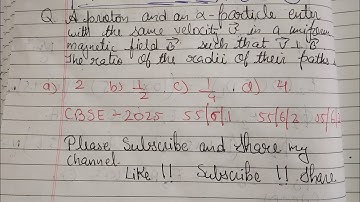 Q. A proton and an α-particle enter
with the same velocity v⃗ in a uniform
magnetic field B⃗ such that v⃗ ⊥ B⃗
The ratio of the radii of their paths
a) 2 b) 1/2 c) 1/4 d) 4
CBSE - 2025 55/6/1 55/6/2 55/6/3
Please Subscribe and share my
channel.
Like !! Subscribe !! Share